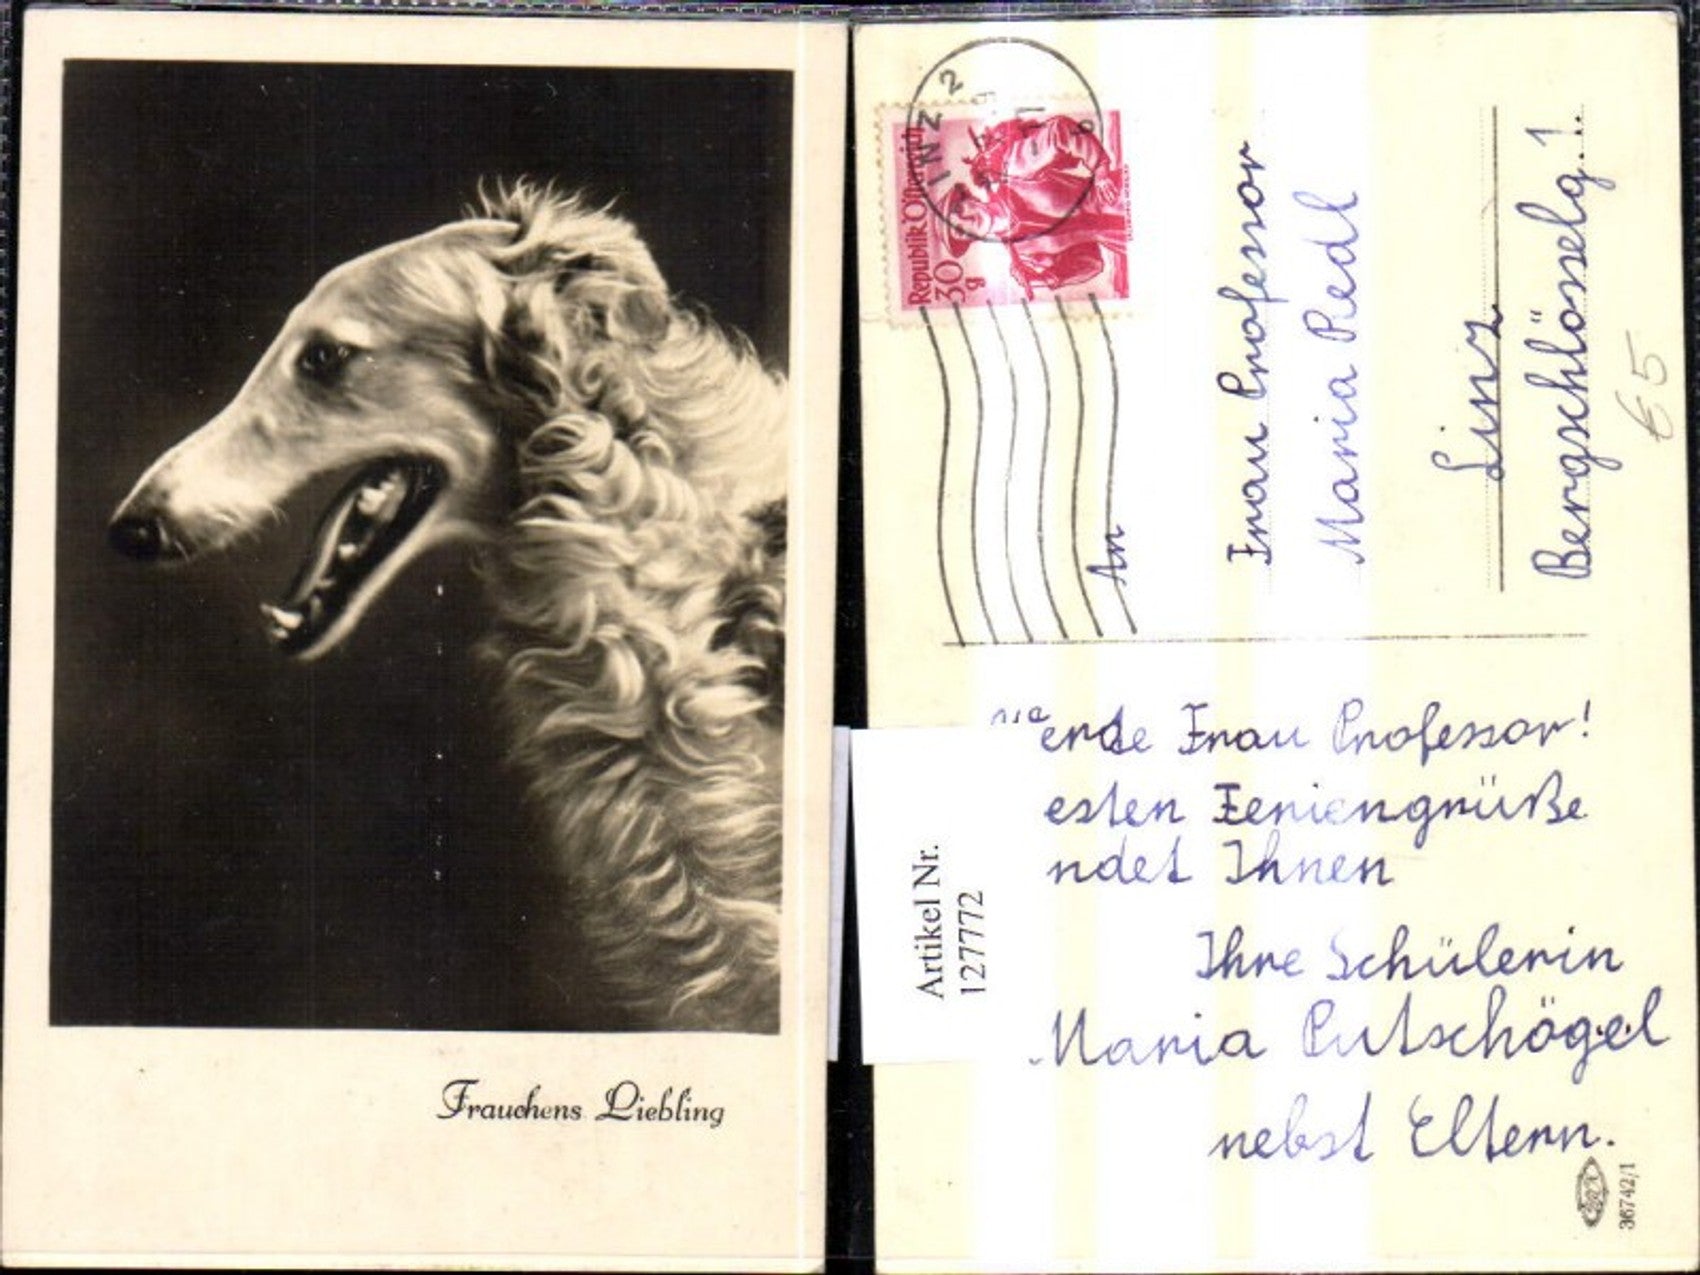 Frauchens Liebling
LINZ 2
Republik Österreich
30
g
An
Frau Professor
Maria Riedl
Linz
Bergschlösselg. 1
€ 5
Artikel Nr.
127772
Frau Professor!
Feriengrüße
Ihnen
Ihre Schülerin
Maria Putschögel
nebst Eltern.
36742/1